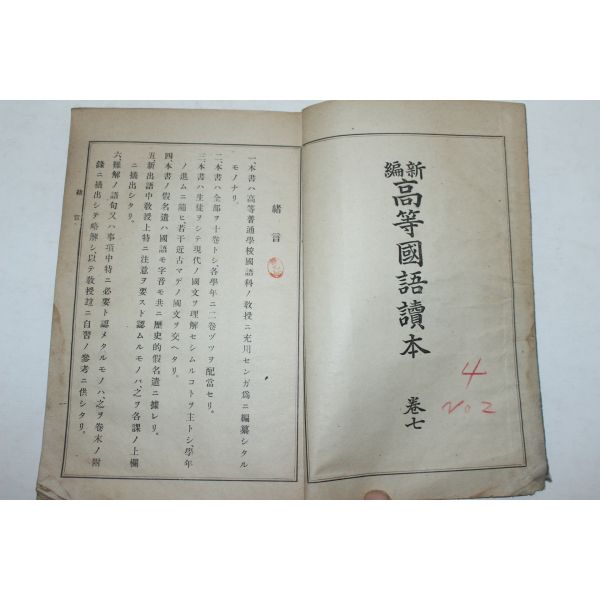 新編
高等國語讀本
卷七
4
No 2
緖言
一、本書ハ高等普通學校國語科ノ敎授ニ充用センガ爲ニ編纂シタル
モノナリ。
二、本書ハ全部ヲ十卷トシ、各學年ニ二卷ヅツヲ配當セリ。
三、本書ハ生徒ヲシテ現代ノ國文ヲ理解セシムルコトヲ主トシ、學年
ノ進ムニ隨ヒ、若干近古マデノ國文ヲ交ヘタリ。
四、本書ノ假名遣ハ國語モ字音モ共ニ歷史的假名遣ニ據レリ。
五、新出語中敎授上特ニ注意ヲ要スト認ムルモノハ、之ヲ各課ノ上欄
ニ摘出シタリ。
六、難解ノ語句又ハ事項中特ニ必要ト認メタルモノハ、之ヲ卷末ノ附
錄ニ摘出シテ略解シ、以テ敎授竝ニ自習ノ參考ニ供シタリ。
緖言